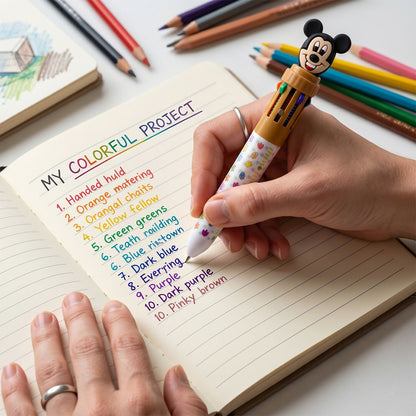 MY COLORFUL PROJECT
1. Handed huld
2. Orange matering
3. Orangal chaits
4. Yellow fellow
5. Green greens
6. Teath railding
6. Blue rikrtown
7. Dark blue
8. Everring
9. Purple
10. Dark purple
10. Pinky brown